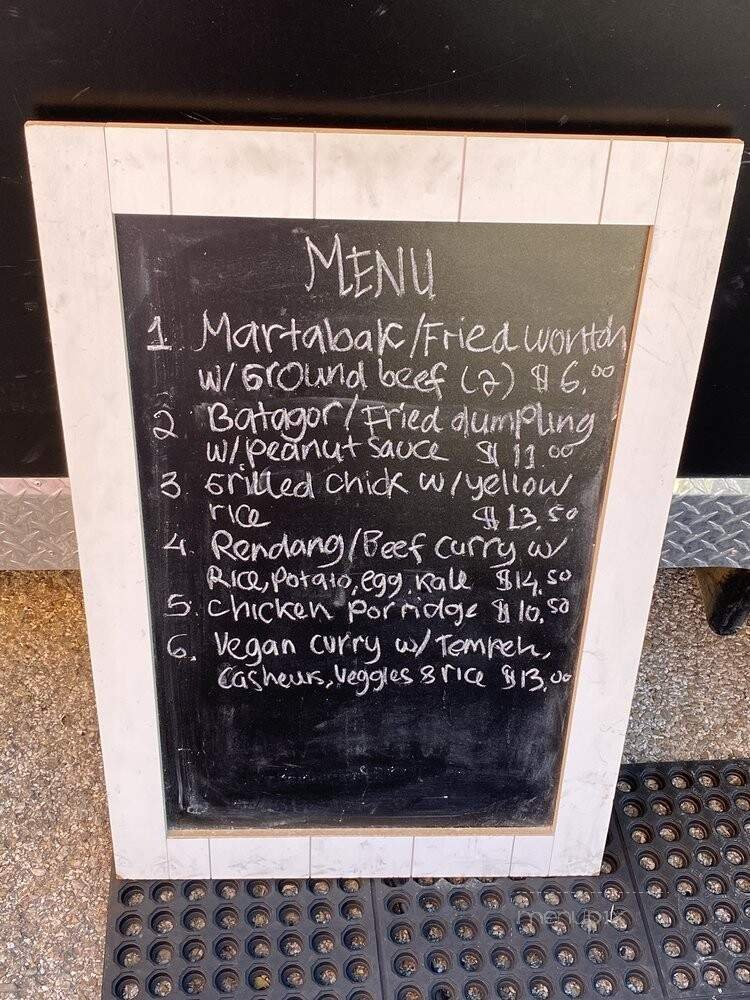 MENU
1. Martabak/Fried wonton
w/Ground beef (2) $6.00
2 Batagor/Fried dumpling
w/peanut sauce $11.00
3 Grilled chick w/yellow
rice $13.50
4. Rendang/Beef curry w/
Rice, potato, egg, kale $14.50
5. Chicken porridge $10.50
6. Vegan curry w/Tempeh,
Cashews, Veggies & rice $13.00
menupix